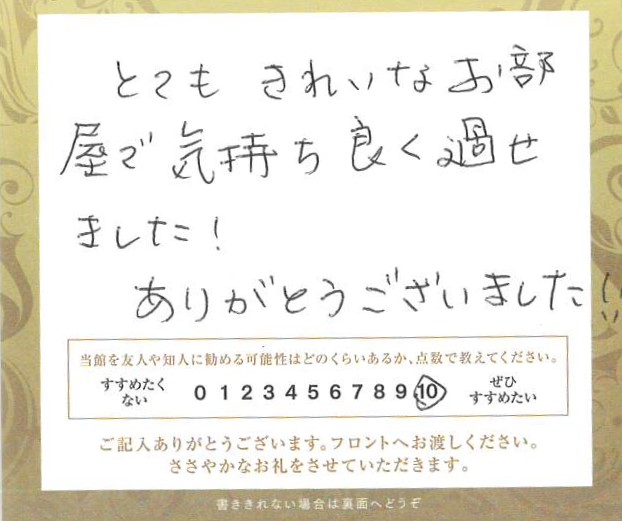 とても きれいなお部
屋で気持ち良く過せ
ました!
ありがとうございました!!
当館を友人や知人に勧める可能性はどのくらいあるか、点数で教えてください。
すすめたく
ない
0 1 2 3 4 5 6 7 8 9 10
ぜひ
すすめたい
ご記入ありがとうございます。フロントへお渡しください。
ささやかなお礼をさせていただきます。
書ききれない場合は裏面へどうぞ